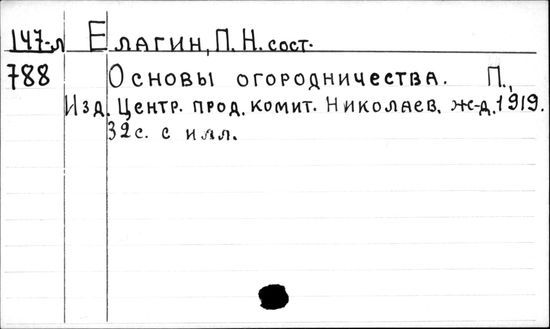 147-л Елагин, П. Н. сост.
788 Основы огородничества. П.,
Изд. Центр. прод. комит. Николаев. ж-д. 1919.
32с. с илл.